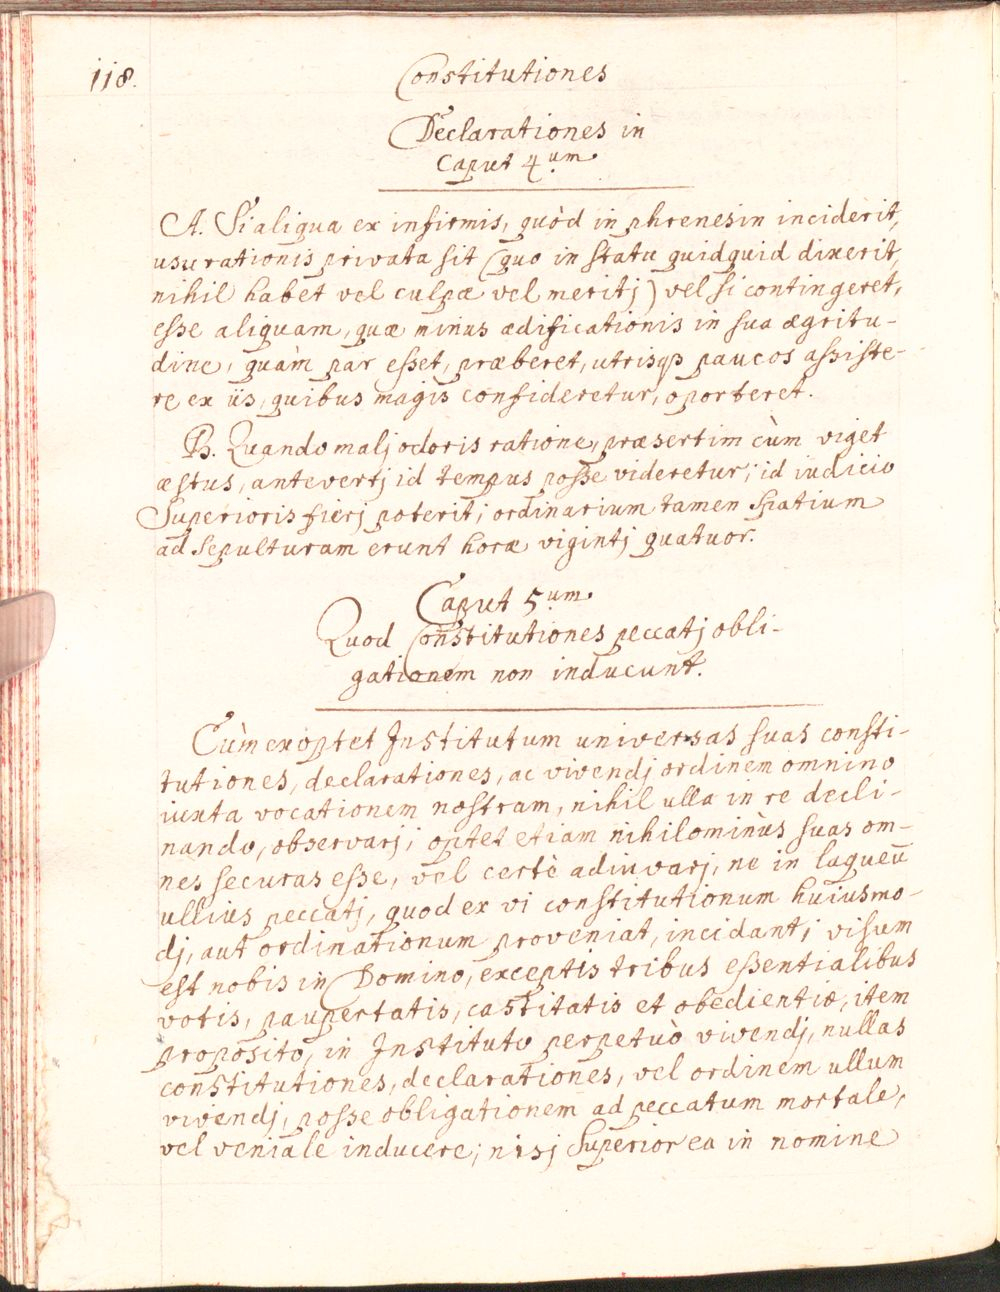 118.
Constitutiones
Declarationes in
Caput 4.um
A. Si aliqua ex infirmis, quòd in phrenesin inciderit,
usu rationis privata sit (quo in statu quidquid dixerit,
nihil habet vel culpæ vel meritj) vel si contingeret,
esse aliquam, quæ minus ædificationis in sua ægritu-
dine, quàm par esset, præberet, utrisqȝ paucos assiste-
re ex iis, quibus magis confideretur, oporteret.
B. Quando malj odoris ratione, præsertim cùm viget
æstus, antevertj id tempus posse videretur; id iudicio
Superioris fierj poterit; ordinarium tamen spatium
ad sepulturam erunt horæ vigintj quatuor.
Caput 5.um
Quod Constitutiones peccatj obli-
gationem non inducunt.
Cùm exoptet Institutum universas suas consti-
tutiones, declarationes, ac vivendj ordinem omnino
iuxta vocationem nostram, nihil ulla in re decli-
nando, observarj; optet etiam nihilominùs suas om-
nes securas esse, vel certè adiuvarj, ne in laqueū
ullius peccatj, quod ex vi constitutionum huiusmo-
dj, aut ordinationum proveniat, incidant; visum
est nobis in Domino, exceptis tribus essentialibus
votis, paupertatis, castitatis et obedientiæ, item
proposito, in Instituto perpetuò vivendj, nullas
constitutiones, declarationes, vel ordinem ullum
vivendj, posse obligationem ad peccatum mortale,
vel veniale inducere; nisj Superior ea in nomine